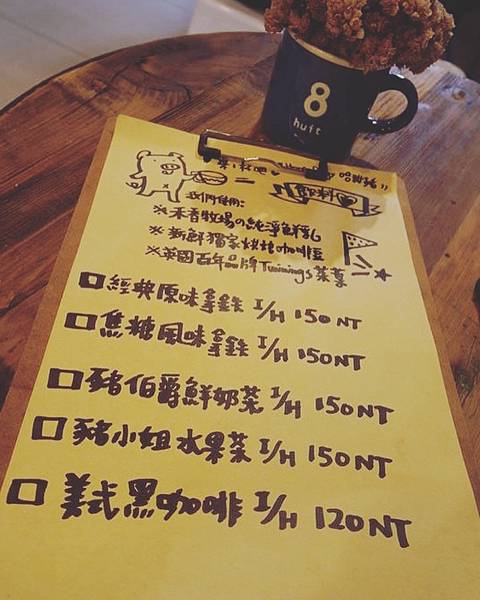 8
huit
飲料
我們使用:
※禾香牧場の純淨鮮乳
※新鮮獨家烘焙咖啡豆
※英國百年品牌Twinings茶葉
□經典原味拿鐵 I/H 150NT
□焦糖風味拿鐵 I/H 150NT
□豬伯爵鮮奶茶 I/H 150NT
□豬小姐水果茶 I/H 150NT
□美式黑咖啡 I/H 120NT